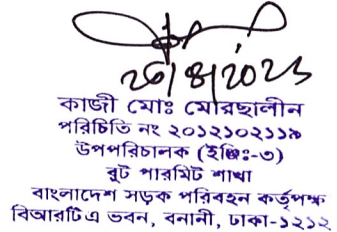 ২৬/৪/২০২৩
কাজী মোঃ মোরছালীন
পরিচিতি নং ২০১২১০২১১৯
উপপরিচালক (ইঞ্জিঃ-৩)
রুট পারমিট শাখা
বাংলাদেশ সড়ক পরিবহন কর্তৃপক্ষ
বিআরটিএ ভবন, বনানী, ঢাকা-১২১২